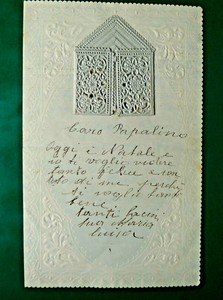 Caro Papalino
Oggi è Natale
io ti voglio
tanto bene e
di me, perchè
ti voglio tanto
bene.
tanti bacini
tua Maria
Luisa